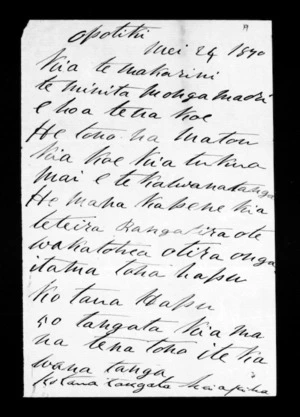 Opotiki
Mei 24 1870
Kia te makarini
te minita mo nga maori
e hoa tena koe
He tono na matou
kia koe kia tukua
mai e te kawanatanga
He mana kapene kia
te teira Rangatira o te
wakatohea otira o nga
itahua tona hapu
Ko tana Hapu
50 tangata kia ma
na tena tono i te ka
wana tanga
ko tana tangata kaiapiha